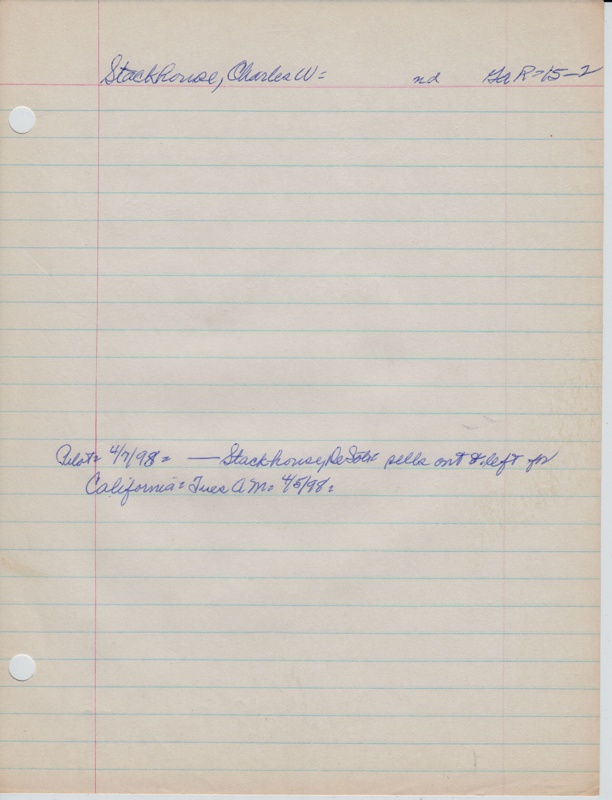 Stackhouse, Charles W= nd R=15-2
Pilot= 4/7/98= — Stackhouse, DeSoto= sells out & left for
California= Tues A.M= 4/5/98=